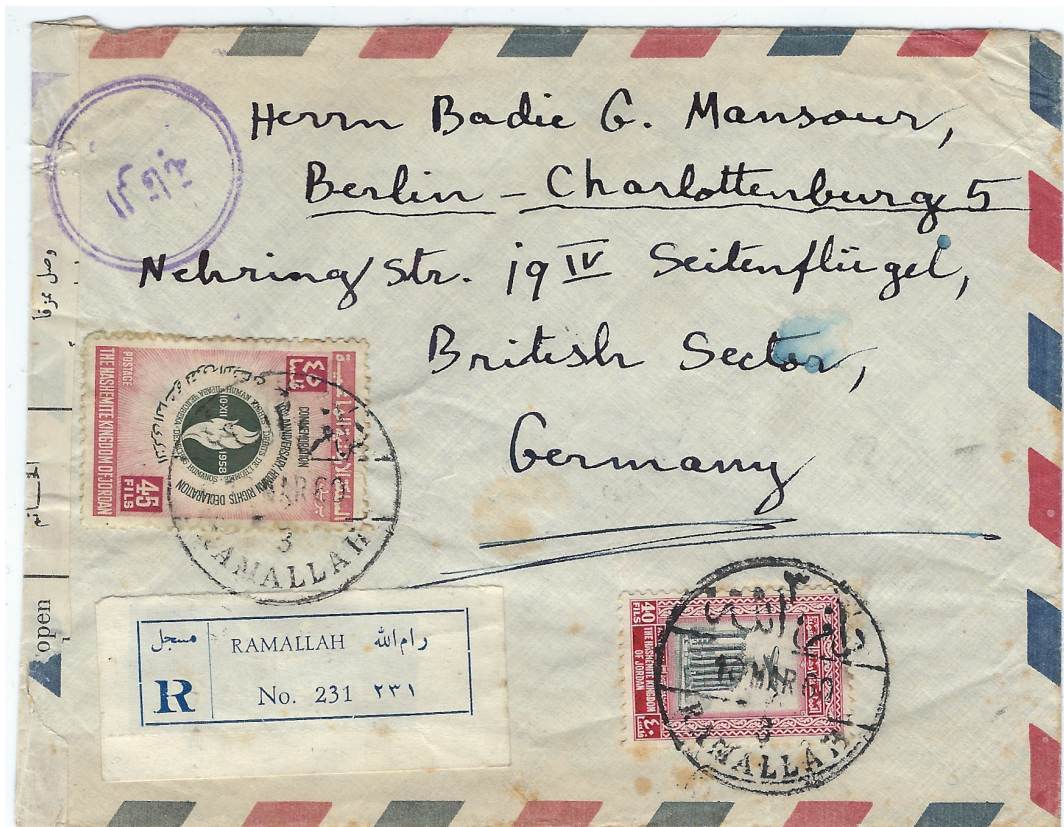 Herrn Badie G. Mansour,
Berlin - Charlottenburg 5
Nehring Str. 19 IV Seitenflügel,
British Sector,
Germany
POSTAGE
THE HASHEMITE KINGDOM OF JORDAN
45
FILS
٤٥
فلسا
COMMEMORATION
10TH ANNIVERSARY, HUMAN RIGHTS DECLARATION
10·XII
1958
MAR 60
3
RAMALLAH
open
مسجل
R
RAMALLAH رام الله
No. 231 ٢٣١
40
FILS
THE HASHEMITE KINGDOM
OF JORDAN
٤٠
MAR 60
3
RAMALLAH